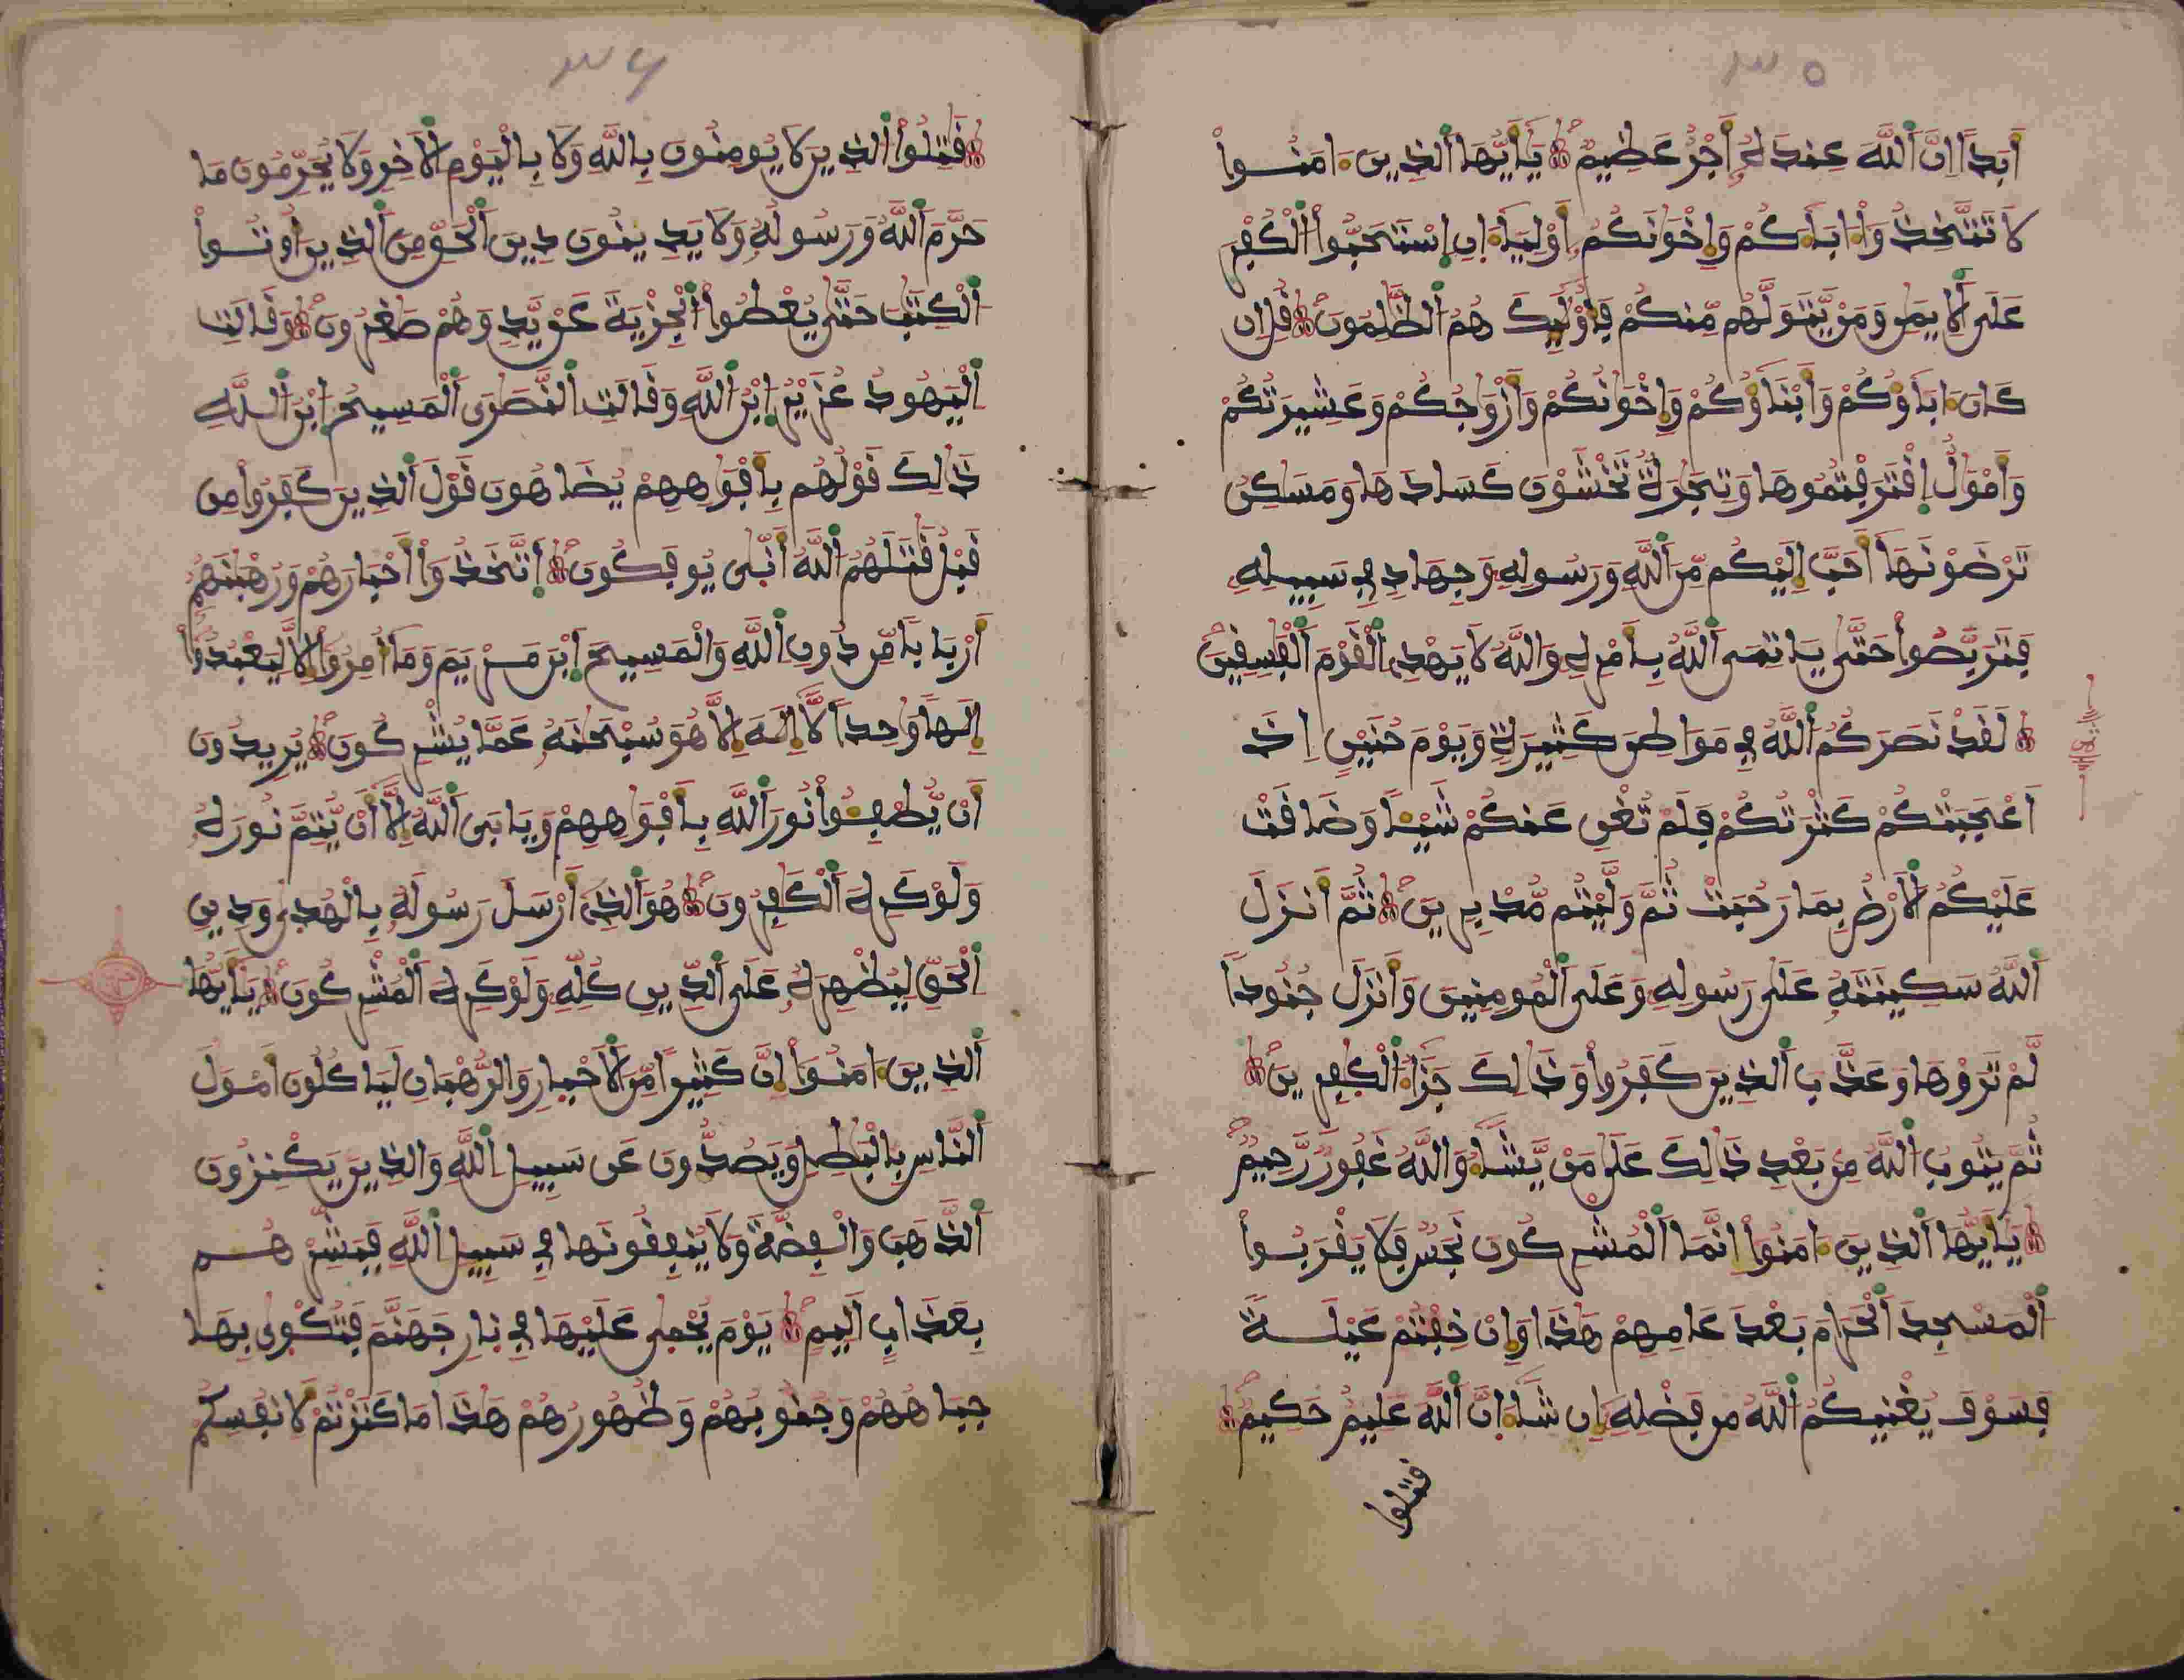 ٣٥
أَبَداً اِنَّ اَللَّهَ عِندَهُ أَجْرٌ عَظِيمٌ يَٰأَيُّهَا اَلذِينَ ءَامَنُواْ
لَا تَتَّخِذُواْ ءَابَاءَكُمْ وَإِخْوَٰنَكُمُ أَوْلِيَاءَ اِنِ اِسْتَحَبُّواْ اَلْكُفْرَ
عَلَى اَلِايمَٰنِ وَمَنْ يَّتَوَلَّهُم مِّنكُمْ فَأُوْلَٰئِكَ هُمُ اَلظَّٰلِمُونَ قُلِ اِن
كَانَ ءَابَاؤُكُمْ وَأَبْنَاؤُكُمْ وَإِخْوَٰنُكُمْ وَأَزْوَٰجُكُمْ وَعَشِيرَتُكُمْ
وَأَمْوَٰلٌ اِقْتَرَفْتُمُوهَا وَتِجَٰرَةٌ تَخْشَوْنَ كَسَادَهَا وَمَسَٰكِنُ
تَرْضَوْنَهَا أَحَبَّ إِلَيْكُم مِّنَ اَللَّهِ وَرَسُولِهِ وَجِهَادٍ فِي سَبِيلِهِ
فَتَرَبَّصُواْ حَتَّىٰ يَاتِيَ اَللَّهُ بِأَمْرِهِ وَاللَّهُ لَا يَهْدِي اَلْقَوْمَ اَلْفَٰسِقِينَ
لَقَدْ نَصَرَكُمُ اَللَّهُ فِي مَوَاطِنَ كَثِيرَةٍ وَيَوْمَ حُنَيْنٍ اِذَ
اَعْجَبَتْكُمْ كَثْرَتُكُمْ فَلَمْ تُغْنِ عَنكُمْ شَيْئاً وَضَاقَتْ
عَلَيْكُمُ اَلَارْضُ بِمَا رَحُبَتْ ثُمَّ وَلَّيْتُم مُّدْبِرِينَ ثُمَّ أَنزَلَ
اَللَّهُ سَكِينَتَهُ عَلَىٰ رَسُولِهِ وَعَلَى اَلْمُومِنِينَ وَأَنزَلَ جُنُوداً
لَّمْ تَرَوْهَا وَعَذَّبَ اَلذِينَ كَفَرُواْ وَذَٰلِكَ جَزَاءُ اَلْكَٰفِرِينَ
ثُمَّ يَتُوبُ اَللَّهُ مِن بَعْدِ ذَٰلِكَ عَلَىٰ مَنْ يَّشَاءُ وَاللَّهُ غَفُورٌ رَّحِيمٌ
يَٰأَيُّهَا اَلذِينَ ءَامَنُواْ إِنَّمَا اَلْمُشْرِكُونَ نَجَسٌ فَلَا يَقْرَبُواْ
اَلْمَسْجِدَ اَلْحَرَامَ بَعْدَ عَامِهِمْ هَٰذَا وَإِنْ خِفْتُمْ عَيْلَةً
فَسَوْفَ يُغْنِيكُمُ اَللَّهُ مِن فَضْلِهِ إِن شَاءَ اِنَّ اَللَّهَ عَلِيمٌ حَكِيمٌ
قَٰتِلُوا
٣٦
قَٰتِلُواْ اَلذِينَ لَا يُومِنُونَ بِاللَّهِ وَلَا بِالْيَوْمِ اِلَاخِرِ وَلَا يُحَرِّمُونَ مَا
حَرَّمَ اَللَّهُ وَرَسُولُهُ وَلَا يَدِينُونَ دِينَ اَلْحَقِّ مِنَ اَلذِينَ أُوتُواْ
اَلْكِتَٰبَ حَتَّىٰ يُعْطُواْ اُلْجِزْيَةَ عَنْ يَّدٍ وَهُمْ صَٰغِرُونَ وَقَالَتِ
اِلْيَهُودُ عُزَيْرُ اُبْنُ اُللَّهِ وَقَالَتِ اِلنَّصَٰرَى اَلْمَسِيحُ اُبْنُ اُللَّهِ
ذَٰلِكَ قَوْلُهُم بِأَفْوَٰهِهِمْ يُضَاهُونَ قَوْلَ اَلذِينَ كَفَرُواْ مِن
قَبْلُ قَٰتَلَهُمُ اُللَّهُ أَنَّىٰ يُوفَكُونَ اَتَّخَذُواْ أَحْبَارَهُمْ وَرُهْبَٰنَهُمُ
أَرْبَاباً مِّن دُونِ اِللَّهِ وَالْمَسِيحَ اَبْنَ مَرْيَمَ وَمَا أُمِرُواْ إِلَّا لِيَعْبُدُواْ
إِلَٰهاً وَٰحِداً لَّا إِلَٰهَ إِلَّا هُوَ سُبْحَٰنَهُ عَمَّا يُشْرِكُونَ يُرِيدُونَ
أَنْ يُّطْفِـُٔواْ نُورَ اَللَّهِ بِأَفْوَٰهِهِمْ وَيَابَى اَللَّهُ إِلَّا أَنْ يُّتِمَّ نُورَهُ
وَلَوْ كَرِهَ اَلْكَٰفِرُونَ هُوَ اَلذِي أَرْسَلَ رَسُولَهُ بِالْهُدَىٰ وَدِينِ
اِلْحَقِّ لِيُظْهِرَهُ عَلَى اَلدِّينِ كُلِّهِ وَلَوْ كَرِهَ اَلْمُشْرِكُونَ يَٰأَيُّهَا
اَلذِينَ ءَامَنُواْ إِنَّ كَثِيراً مِّنَ اَلَاحْبَارِ وَالرُّهْبَانِ لَيَاكُلُونَ أَمْوَٰلَ
اَلنَّاسِ بِالْبَٰطِلِ وَيَصُدُّونَ عَن سَبِيلِ اِللَّهِ وَالذِينَ يَكْنِزُونَ
اَلذَّهَبَ وَالْفِضَّةَ وَلَا يُنفِقُونَهَا فِي سَبِيلِ اِللَّهِ فَبَشِّرْهُم
بِعَذَابٍ أَلِيمٍ يَوْمَ يُحْمَىٰ عَلَيْهَا فِي نَارِ جَهَنَّمَ فَتُكْوَىٰ بِهَا
جِبَاهُهُمْ وَجُنُوبُهُمْ وَظُهُورُهُمْ هَٰذَا مَا كَنَزْتُمْ لِأَنفُسِكُمْ